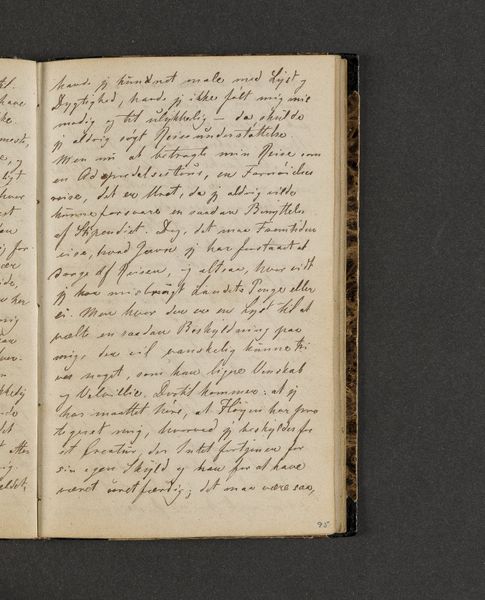 havde jeg kundnet male med Lyst og
Dygtighed, havde jeg ikke følt mig mis
modig og til ulykkelig — da skulde
jeg aldrig søgt Reiseunderstøttelse
Men nu at betragte min Reise som
en Adspredelsestour, en Fornøielses
reise, det er Uret, da jeg aldrig vilde
kunne forsvare en saadan Benyttelse
af Stipendiet. Dog, det maa Fremtiden
vise, hvad Gavn jeg har forstaaet at
drage af Reisen, og altsaa, hvor vidt
jeg har misbrugt Landets Penge eller
ei. Men hvor der er en Lyst til at
vælte en saadan Beskyldning paa
mig, der vil vanskelig kunne tri
ves noget, som kan ligne Venskab
og Velvillie. Dertil kommer: at jeg
har maattet høre, at Høyen har pro
tegeret mig, hvorved jeg beskyldes for
et Creatur, der Intet fortjener for
sin egen Skyld og han for at have
været uretfærdig; det maa være saa,
95